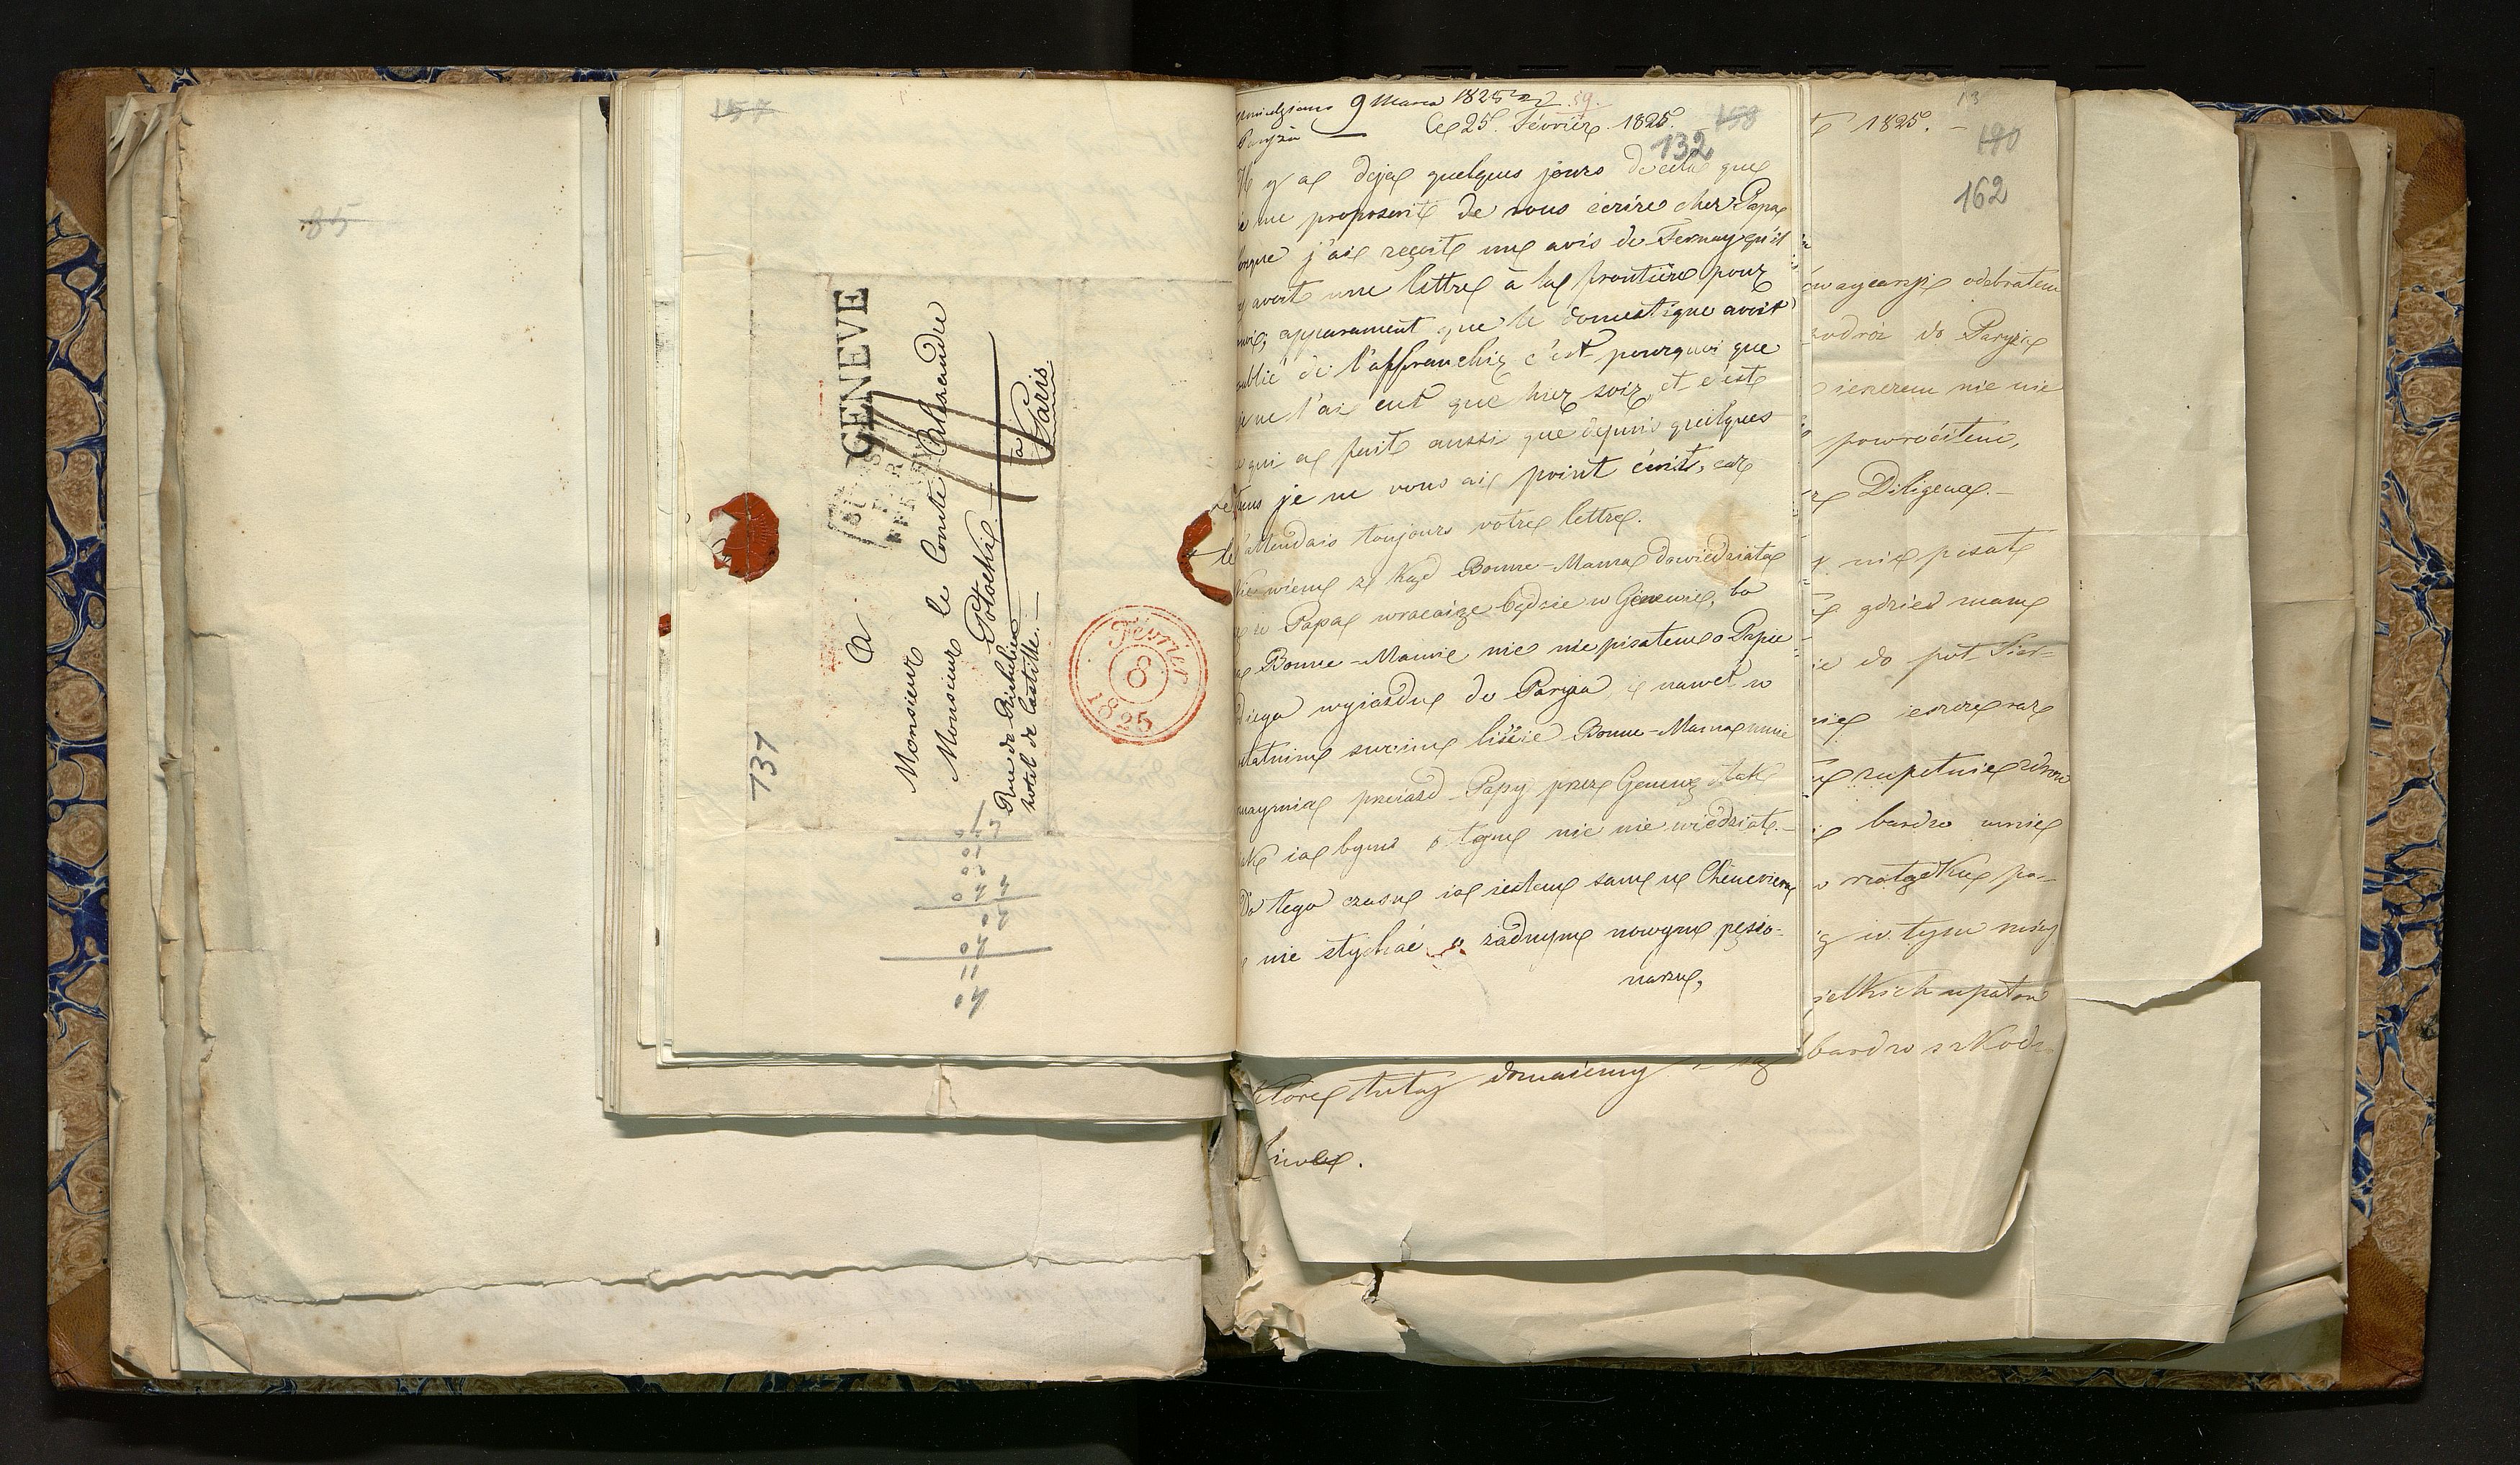 85
157
GENEVE
PAR
FERNEY
A
Monsieur
Monsieur le Comte Alexandre
Potockie
Rue de Richelieu
hotel de Castille.
à Paris
131
Février
8
1825
9 Marca 1825 59.
Paryża
Ce 25. Février 1825.
158
132
Il y a deja quelques jours de cela que
je me proposerit de vous écrire cher Papa
lorsque j'ai reçeit une avis de Fernay qu'il
y avoit une lettre à la frontière pour
moi; apparament que le domestique avoit
oublié de l'affranchir c'est pourquoi que
je ne l'ai eut que hier soir, et c'est
ce qui a fait aussi que depuis quelques
tems je ne vous ai point écrit, car
j'attendais toujours votre lettre.
Nie wiem z kąd Bonne-Mama dowiedziała
się że Papa wracaiąc będzie w Genewie, bo
ia Bonne-Mamie nic nie pisałem o Papie
wyiazdu do Paryża, i nawet w
ostatnim swoim liście Bonne-Mama mnie
oznaymia przeiazd Papy przez Genewę tak
iak ia bym o tym nic nie wiedział.
Do tego czasu ia iestem sam u Cheneviera
i nie słychać o żadnym nowym pęsio-
narzu,
1825.
13
180
162
odebrałem
podróż do Paryża
ieszcem nic nie
powrócitem,
Diligence.
nie pisał
gdzieś mam
do pół Sier-
ieszcze raz
zupełnie zdrow
bardzo mnie
w żołądku po-
w tym
upałow
bardzo szkod
które tutay